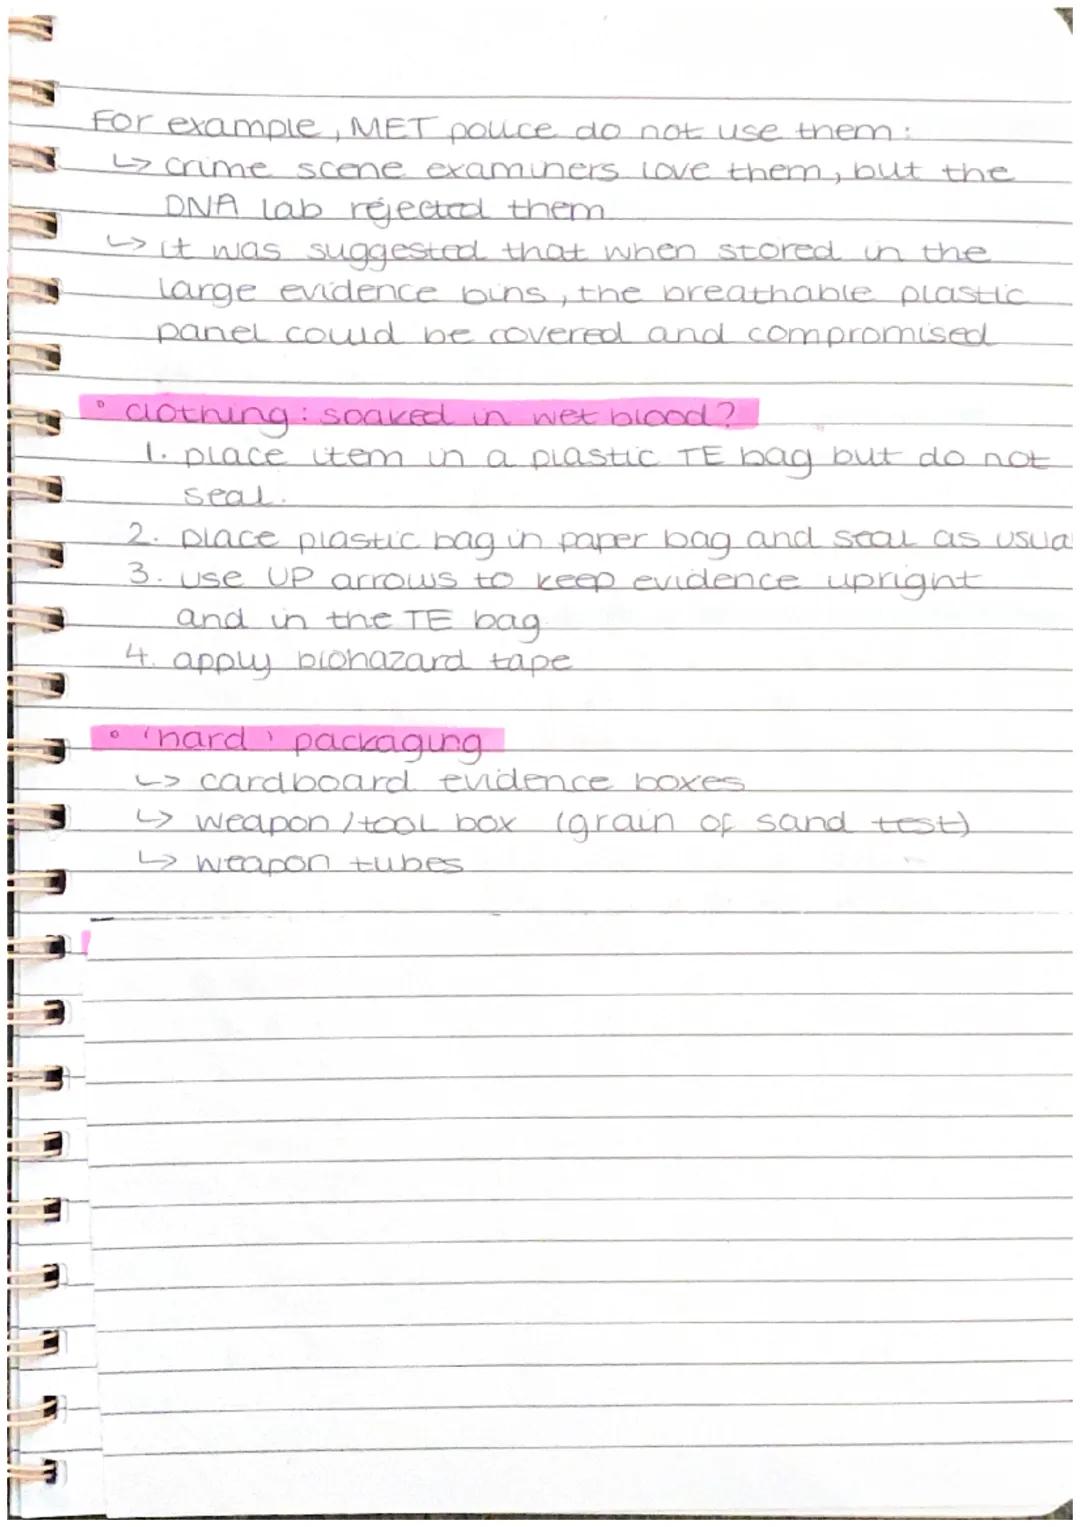 For example, MET police do not use them:
↳ crime scene examiners love them, but the
DNA lab rejected them
↳ it was suggested that when stored in the
large evidence bins, the breathable plastic
panel could be covered and compromised
° clothing: soaked in wet blood?
1. place item in a plastic TE bag but do not
seal.
2. place plastic bag in paper bag and seal as usua
3. use UP arrows to keep evidence upright
and in the TE bag
4. apply biohazard tape
° 'hard' packaging
↳ cardboard evidence boxes
↳ weapon/tool box (grain of sand test)
↳ weapon tubes